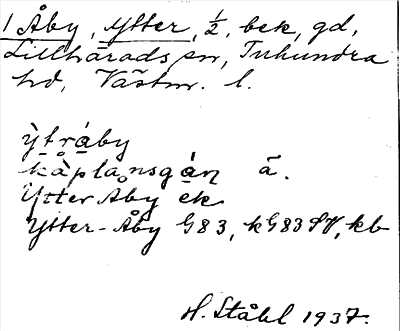 1 Åby, Ytter, 1/2, bek, gd,
Lillhärads sn, Tuhundra
hd, Västm. l.
ỳtråby
kåplansgán ā.
Ytter Aby ek
Ytter-Åby G83, kG83 SV, kb
H. Ståhl 1937.